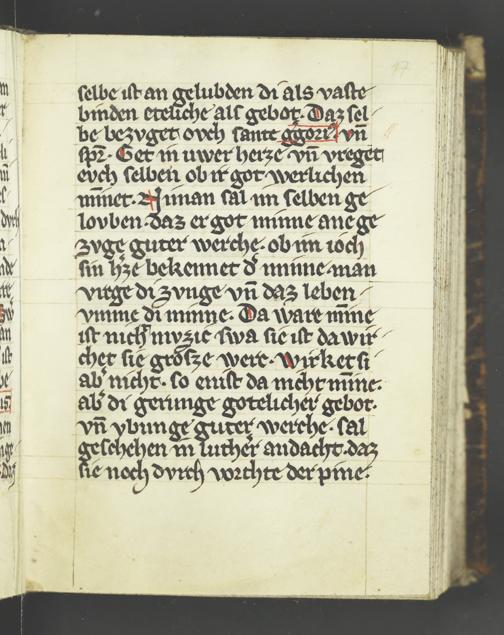 17
selbe ist an gelubden di als vaste
binden eteliche als gebot. Daz sel
be bezvget ovch sante ggori' vn̄
spͬ. Get in uwer herze vn̄ vreget
evch selben ob ir got werlichen
minnet. Niman sal im selben ge
lovben. daz er got minne ane ge
zvge guter werche. ob im ioch
sin h̾ze bekennet d̾ minne. man
vrege di zvnge vn̄ daz leben
vmme di minne. Da ware miñe
ist nicht mvzic swa sie ist da wir
chet sie grosze werc. Wirket si
ab̾ nicht. so enist da nicht miñe.
ab̾ di gerunge gotelicher gebot.
vn̄ vbunge guter werche. sal
geschehen in luther andacht. daz
sie noch dvrch vorchte der pine.